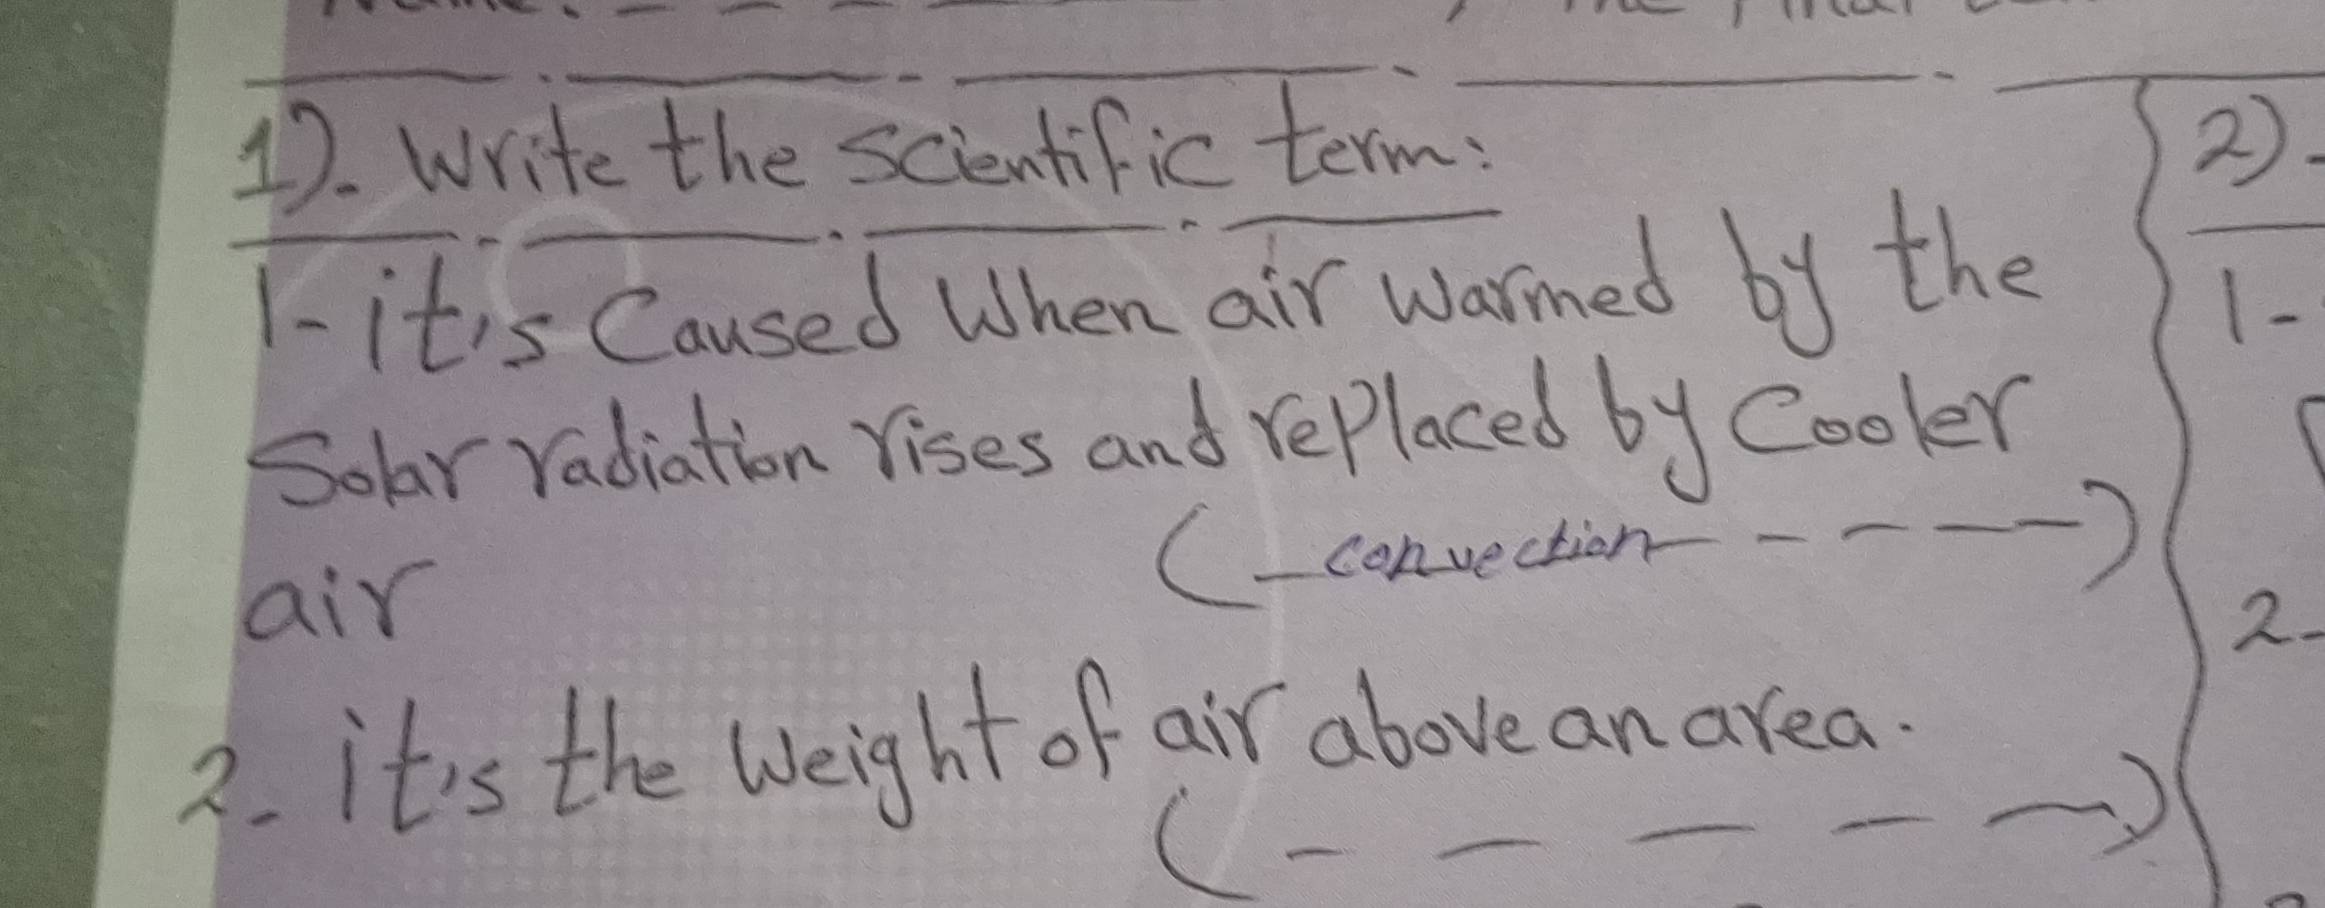 1). Write the scientific term:
1- it's Caused When air warmed by the
Solar radiation rises and replaced by Cooler
air (convection)
2- it's the Weight of air above an area.
2)-
1-
2-